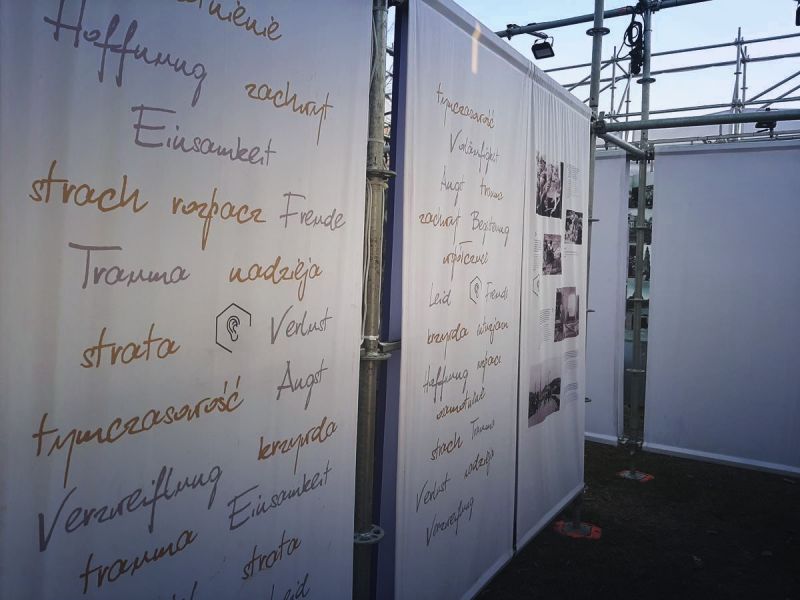 Hoffnung zachwyt
Einsamkeit
strach rozpacz Freude
Trauma nadzieja
strata Verlust
tymczasowość Angst
Verzweiflung krzywda
trauma Einsamkeit
strata
tymczasowość
Vorläufigkeit
Angst trauma
zachwyt Begeisterung
współczucie
Leid Freude
krzywda
Hoffnung rozpacz
osamotnienie
strach Trauma
Verlust nadzieja
Verzweiflung